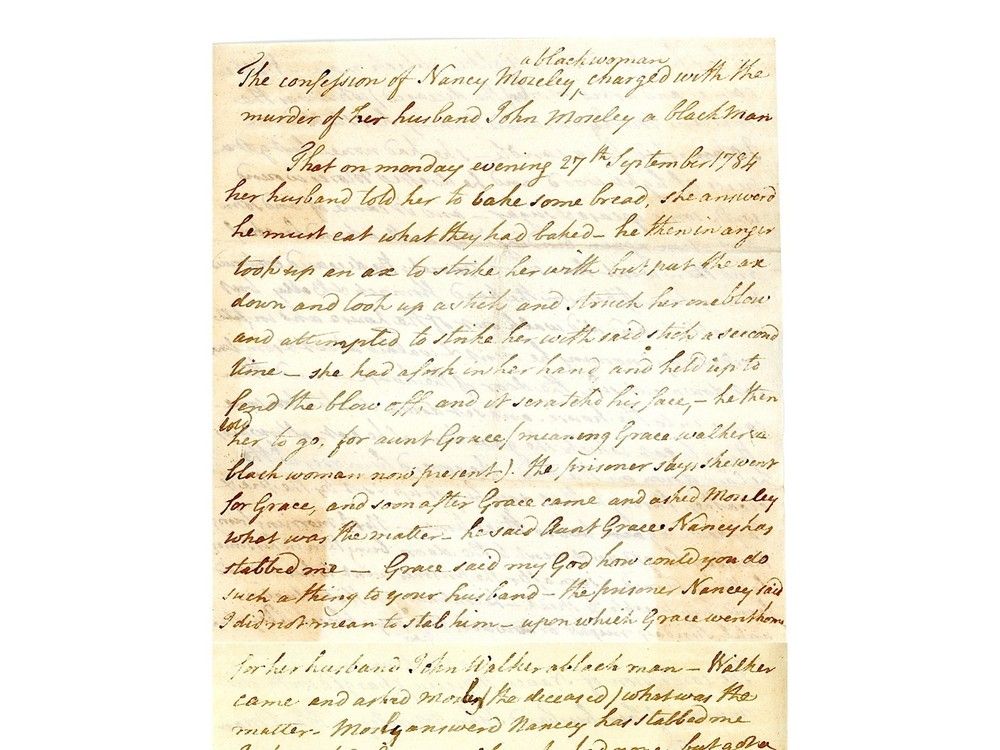 a black woman
The confession of Nancy Mozeley, charged with the
murder of her husband John Moseley a black Man
That on monday evening 27th September 1784
her husband told her to bake some bread, she answerd
he must eat what they had baked - he then in anger
took up an ax to strike her with but put the ax
down and took up a stick and struck her one blow
and attempted to strike her with said stick a second
time - she had a fork in her hand and held up to
fend the blow off and it scratchd his face, - he then
told
her to go, for aunt Grace (meaning Grace walker a
black woman now present). the prisoner says she went
for Grace, and soon after Grace came and asked Moseley
what was the matter - he said Aunt Grace Nancey has
stabbed me - Grace said my God how could you do
such a thing to your husband - the prisoner Nancey said
I did not mean to stab him - upon which Grace went home
for her husband John Walker a black man - Walker
came and asked Mosley (the deceased) what was the
matter - Mosly answerd Nancey has stabbed me